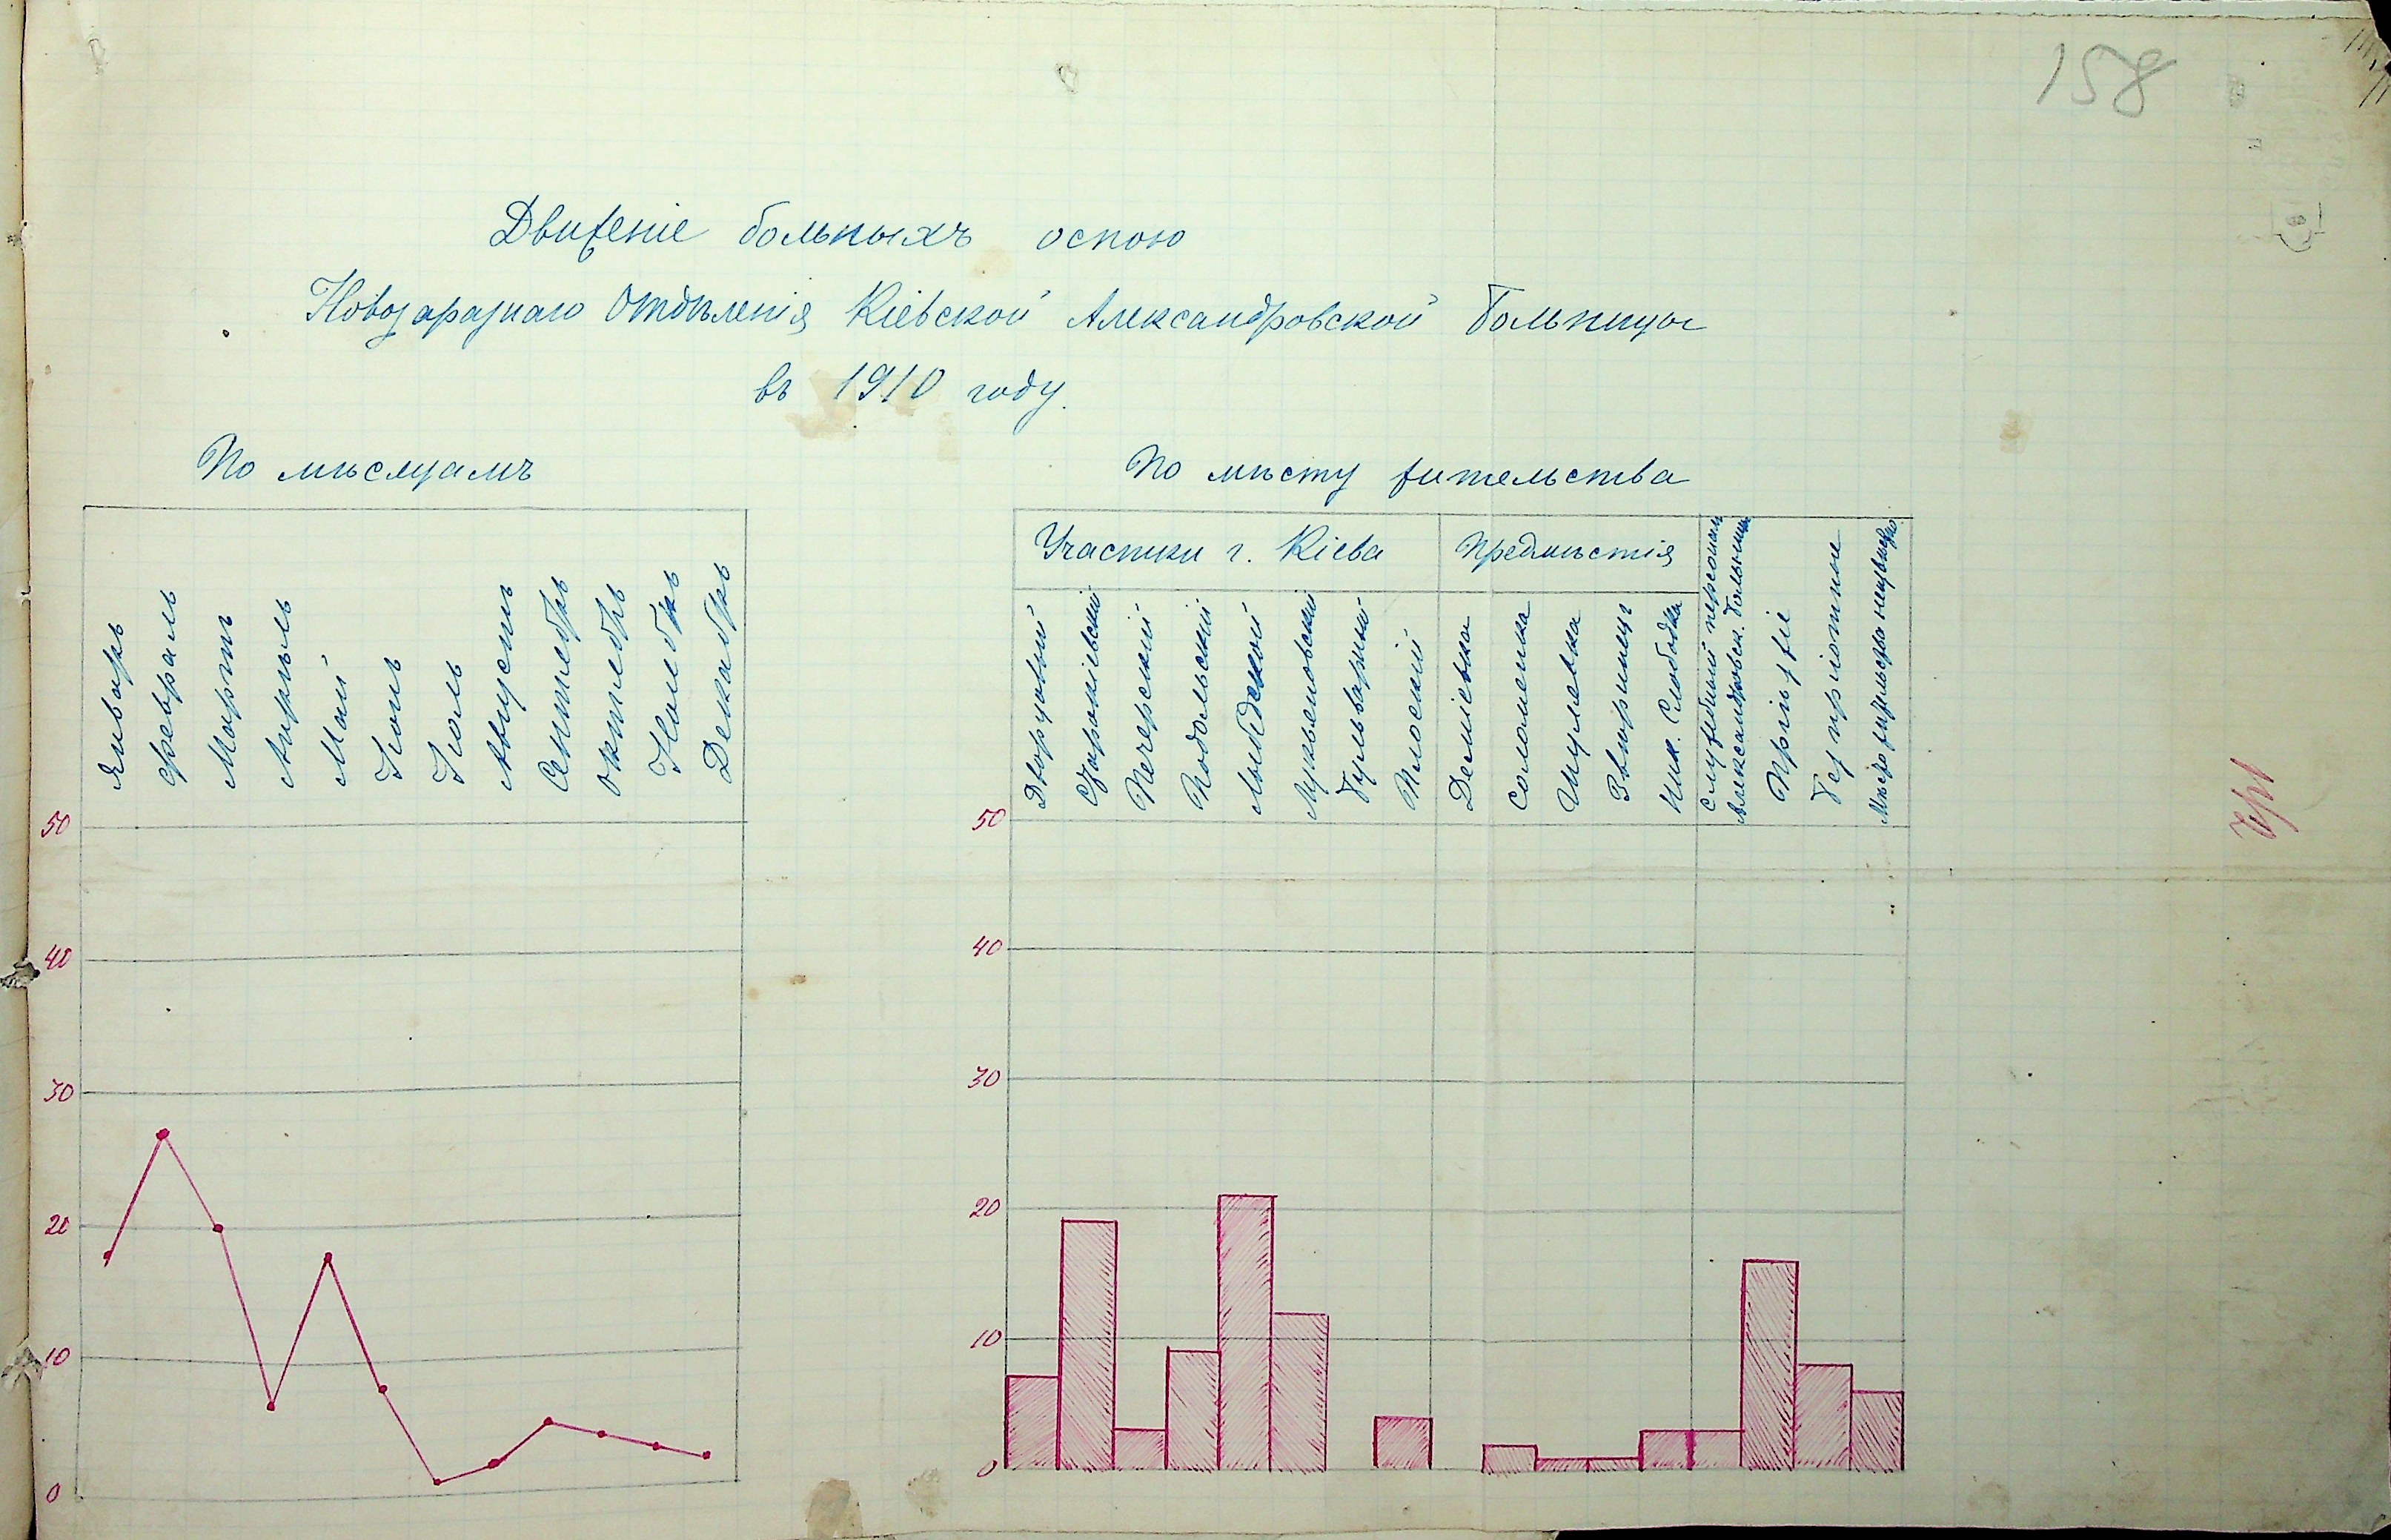 158
Движеніе больныхъ оспою
Новозаразнаго Отдѣленія Кіевской Александровской Больницы
въ 1910 году.
По мѣсяцамъ
Январь
Февраль
Мартъ
Апрѣль
Май
Іюнь
Іюль
Августъ
Сентябрь
Октябрь
Ноябрь
Декабрь
50
40
30
20
10
0
По мѣсту жительства
Участки г. Кіева
Предмѣстія
Дворцовый
Старокіевскій
Печерскій
Подольскій
Лыбедской
Лукьяновскій
Бульварный
Плоскій
Деміевка
Соломенка
Шулевка
Звѣринецъ
Ник. Слободка
Служебный персоналъ
Александровск. больницы
Пріѣзжіе
Безпріютные
Мѣсто жительства неизвѣстно
50
40
30
20
10
0